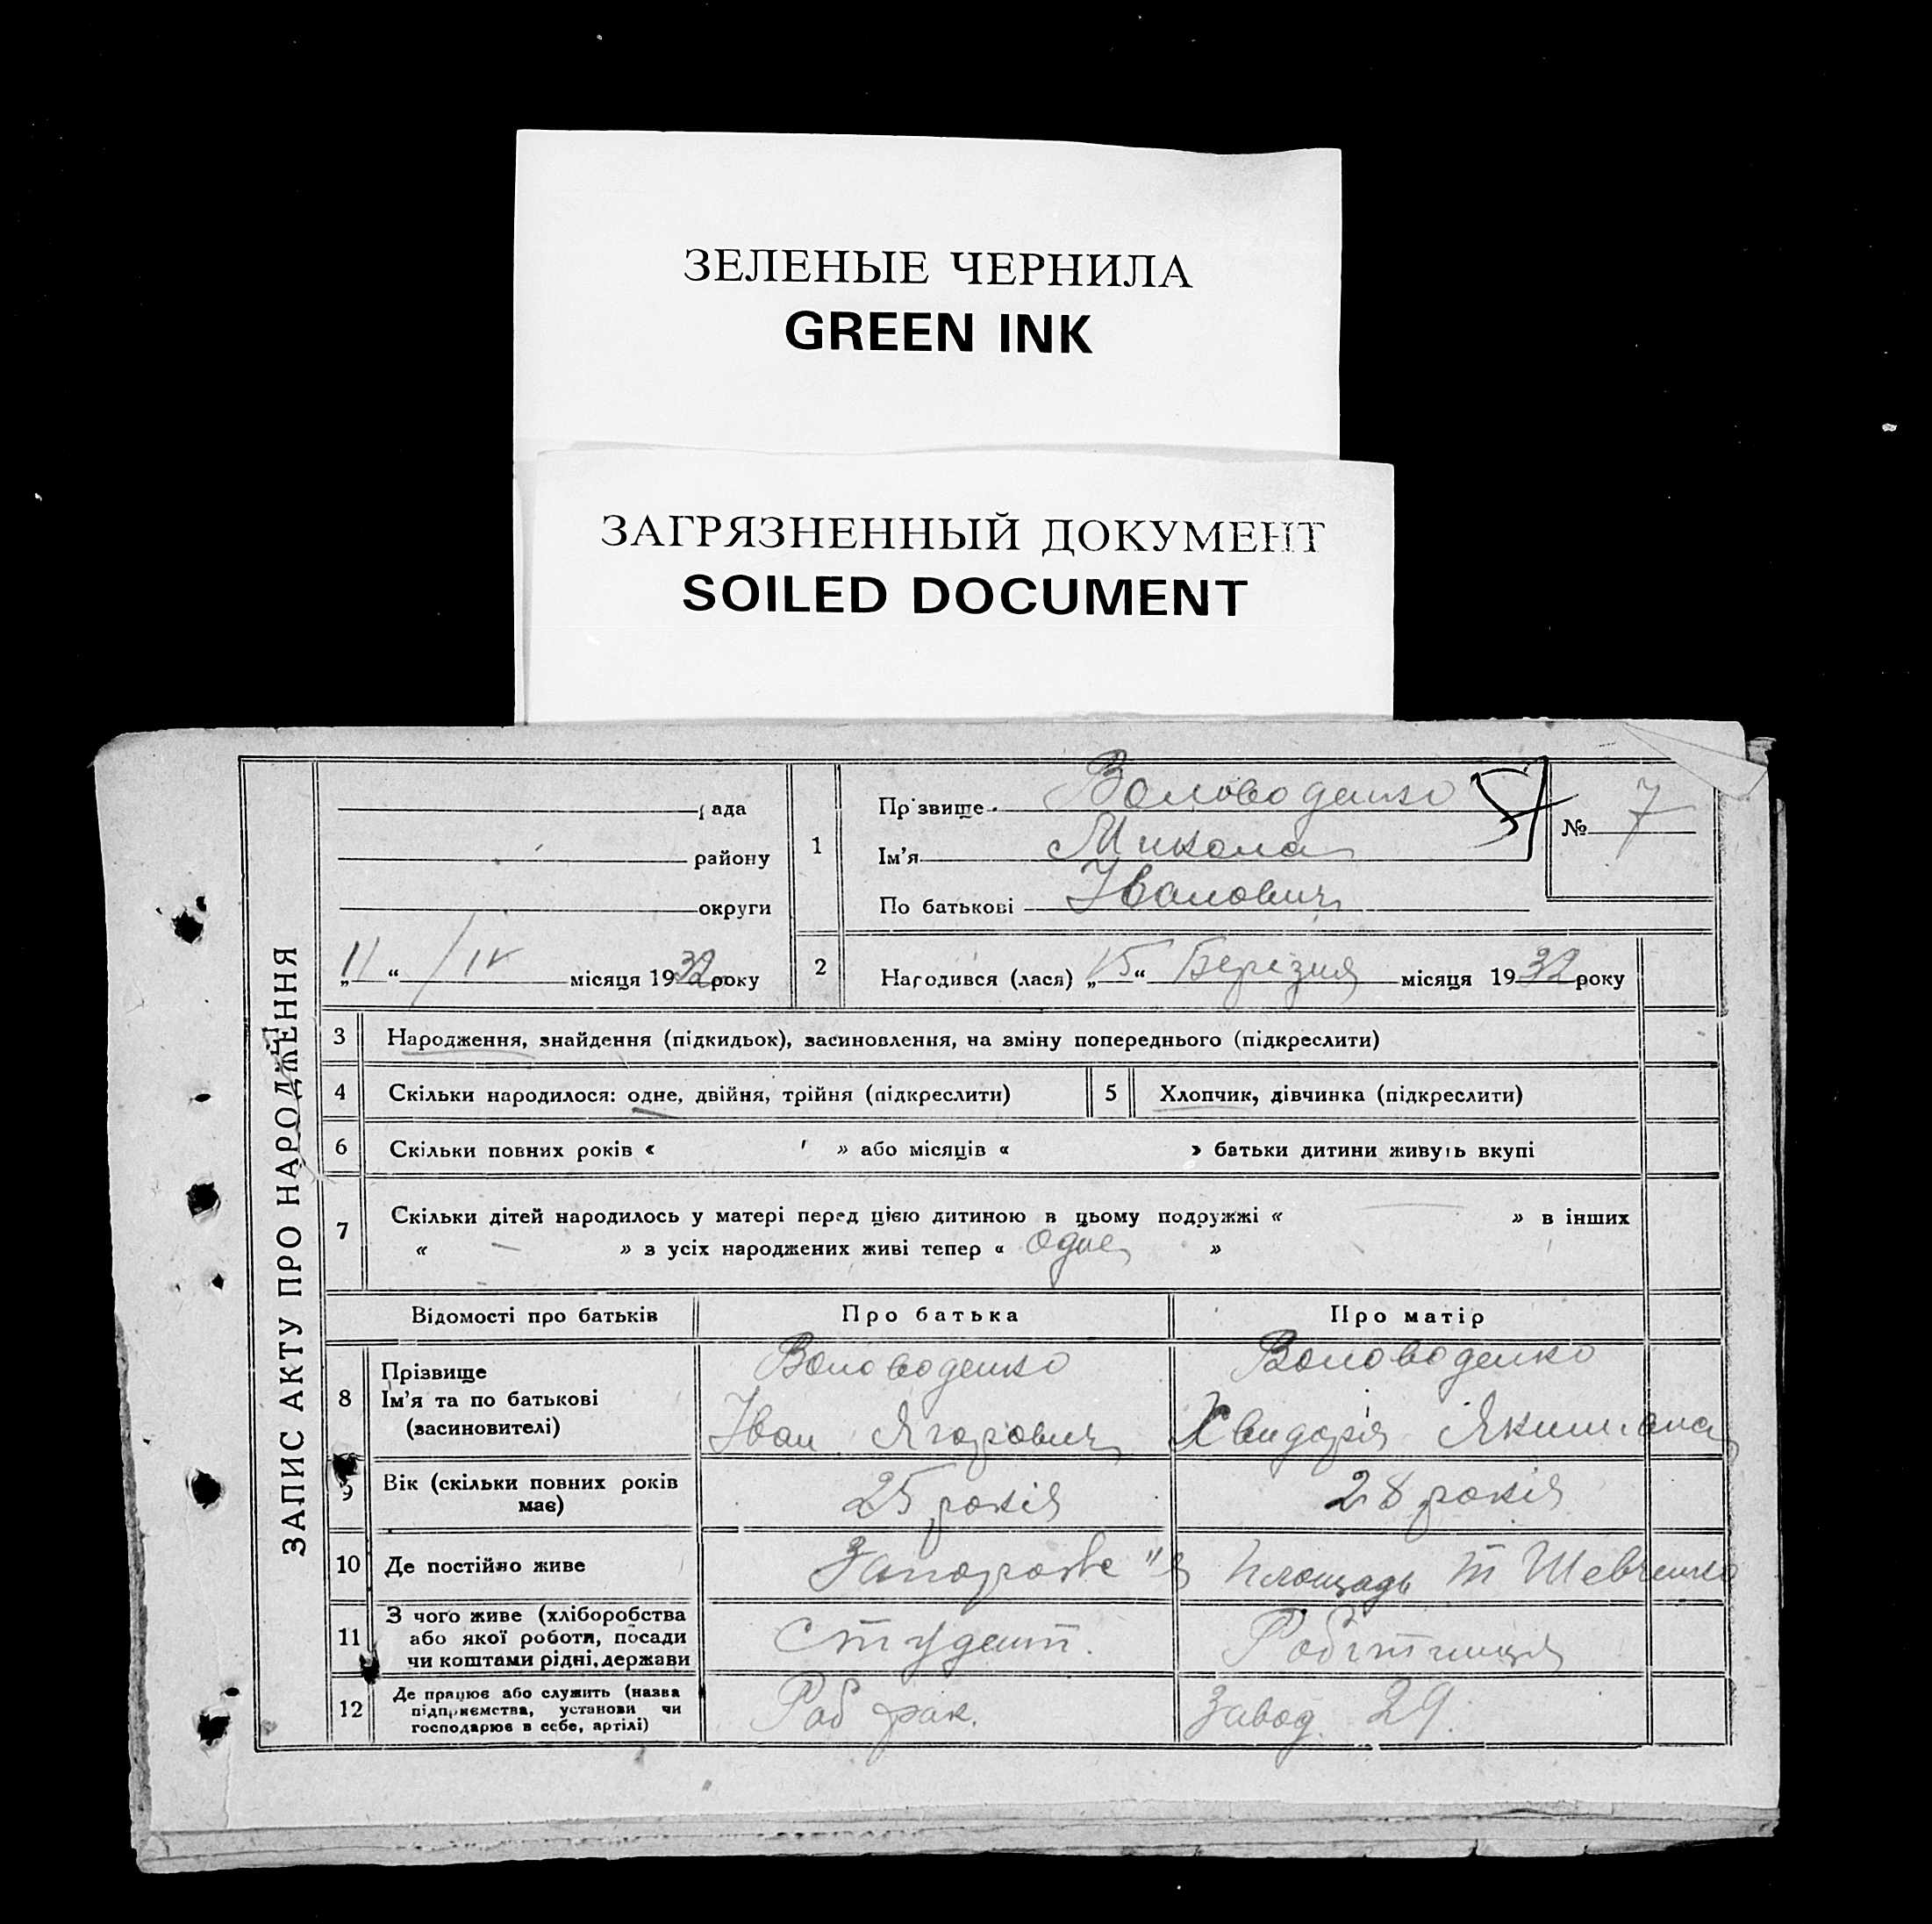 ЗЕЛЕНЫЕ ЧЕРНИЛА
GREEN INK
ЗАГРЯЗНЕННЫЙ ДОКУМЕНТ
SOILED DOCUMENT
ЗАПИС АКТУ ПРО НАРОДЖЕННЯ
рада
району
округи
„11“ IV місяця 1932 року
1
Прізвище Воловоденко
Ім’я Микола
По батькові Іванович
№ 7
2
Народився (лася) „15“ Березня місяця 1932 року
3 Народження, знайдення (підкидьок), засиновлення, на зміну попереднього (підкреслити)
4 Скільки народилося: одне, двійня, трійня (підкреслити)
5 Хлопчик, дівчинка (підкреслити)
6 Скільки повних років « » або місяців « » батьки дитини живуть вкупі
7 Скільки дітей народилось у матері перед цією дитиною в цьому подружжі « — » в інших
« — » з усіх народжених живі тепер « одне »
Відомості про батьків Про батька Про матір
8 Прізвище
Ім’я та по батькові
(засиновителі)
Воловоденко
Іван Ягорович
Воловоденко
Хвидорія Якимовна
9 Вік (скільки повних років
має)
25 років
28 років
10 Де постійно живе
Площадь Т Шевченка
11 З чого живе (хліборобства
або якої роботи, посади
чи коштами рідні, держави
Студент.
Робітниця
12 Де працює або служить (назва
підприємства, установи чи
господарює в себе, артілі)
Роб фак.
Завод 29.